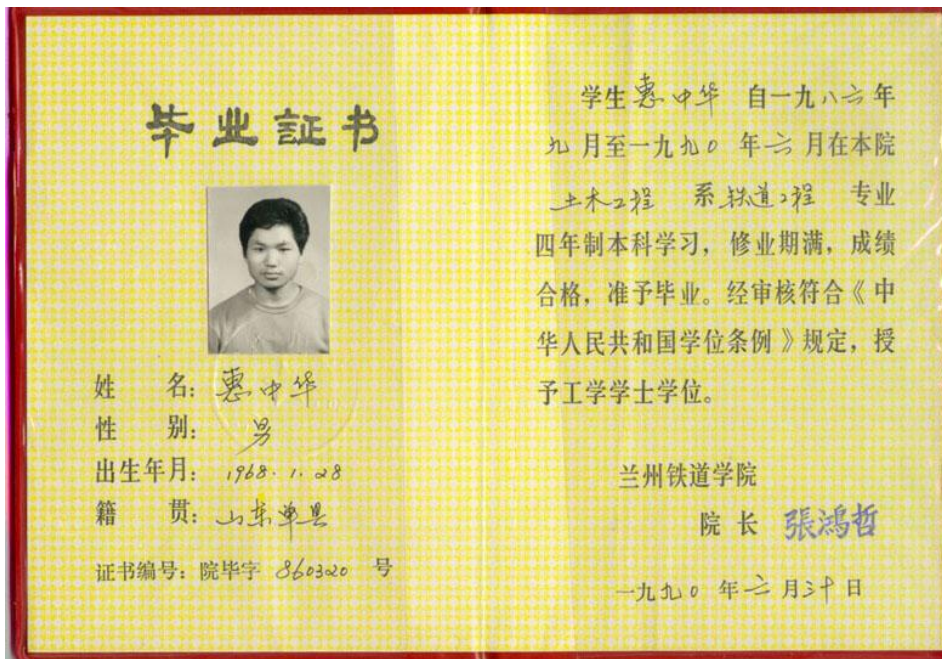 毕业証书
姓 名：惠中华
性 别：男
出生年月：1968.1.28
籍 贯：山东单县
证书编号：院毕字 860320 号
学生惠中华 自一九八六年
九月至一九九0年六月在本院
土木工程 系铁道工程 专业
四年制本科学习，修业期满，成绩
合格，准予毕业。经审核符合《中
华人民共和国学位条例》规定，授
予工学学士学位。
兰州铁道学院
院 长 張鴻哲
一九九0年六月三十日